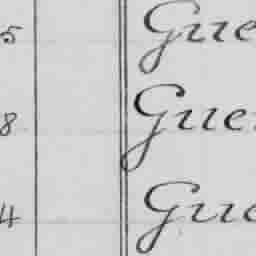 5 Gue
8 Gue
4 Gue